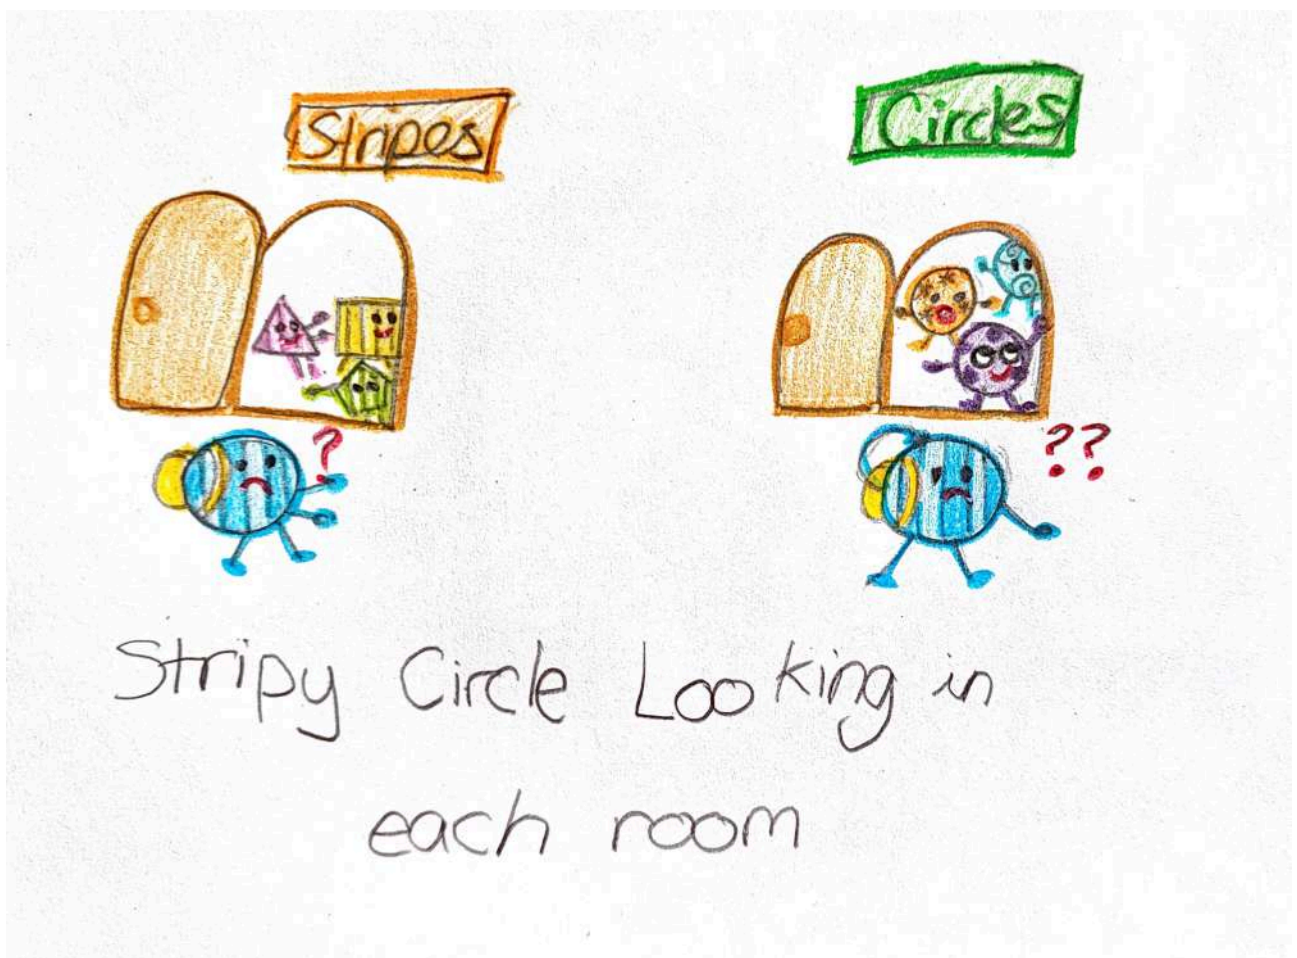 Stripes
Circles
?
??
Stripy Circle Looking in
each room